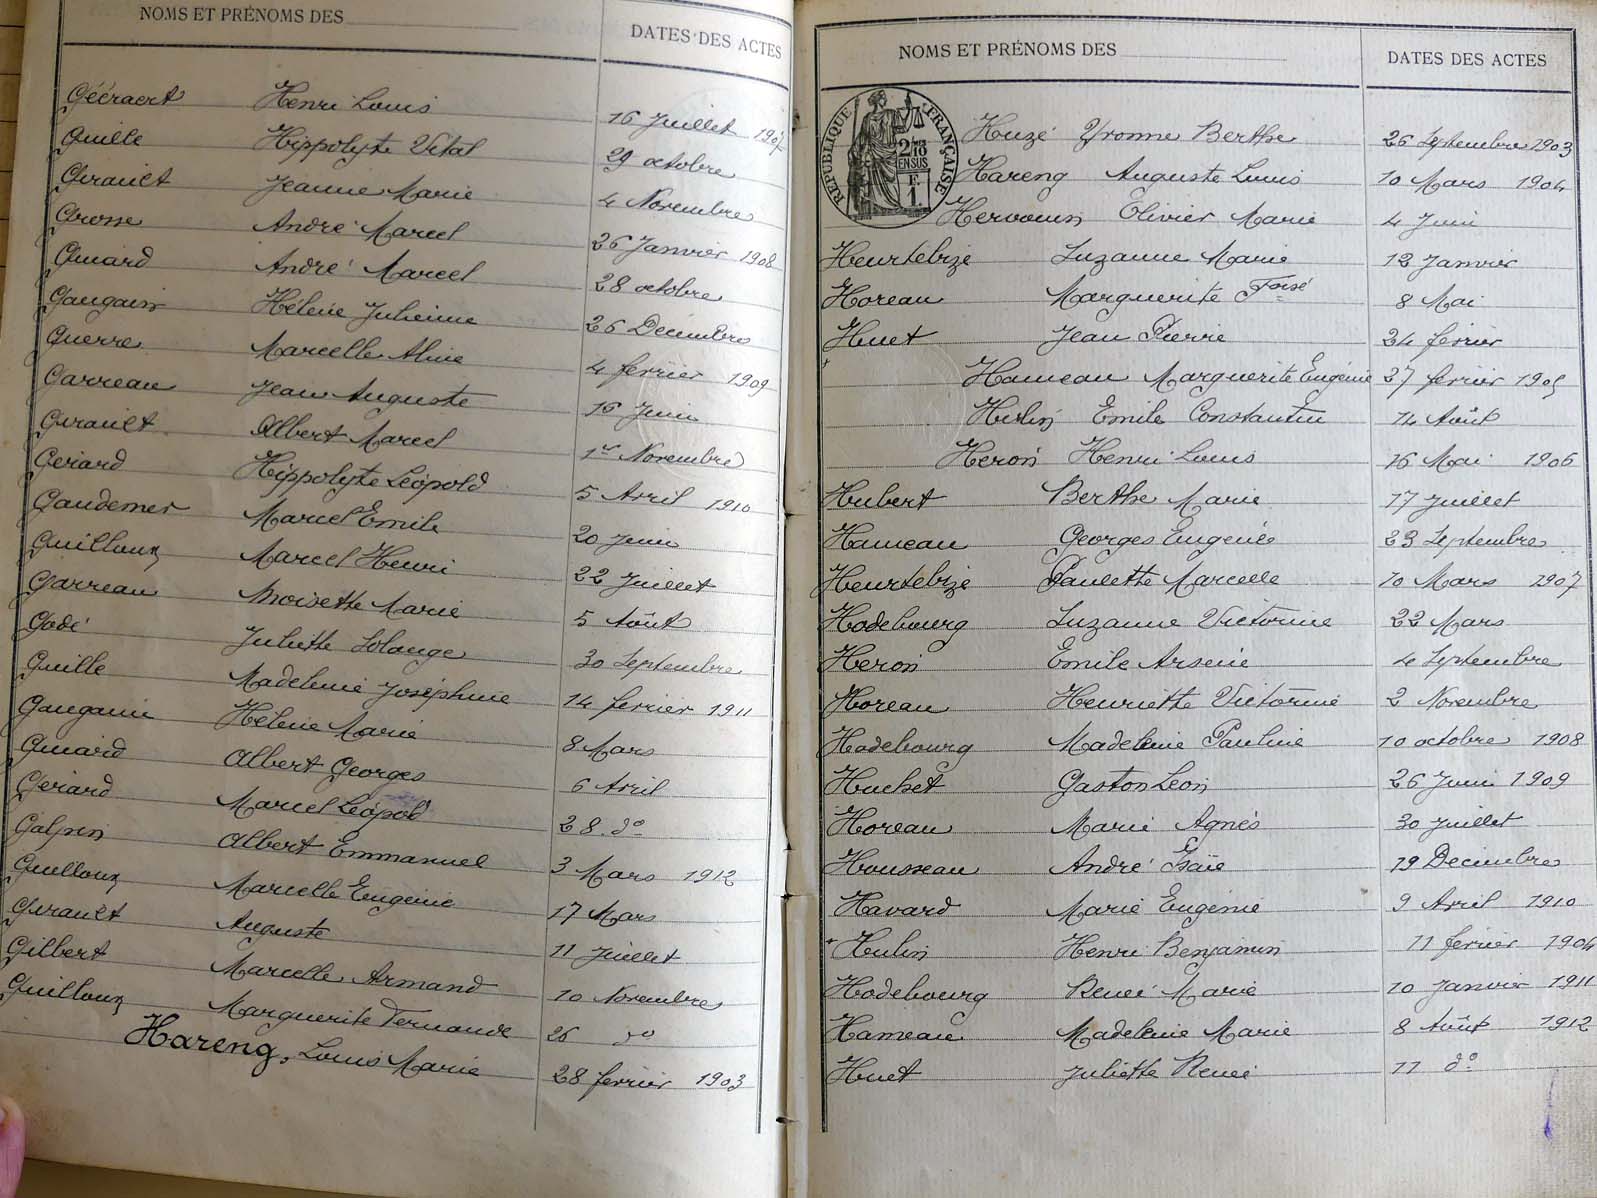 NOMS ET PRÉNOMS DES DATES DES ACTES
Gééraert Henri Louis 16 Juillet 1907
Guille Hippolyte Vital 29 octobre
Girault Jeanne Marie 4 Novembre
Grosse André Marcel 26 Janvier 1908
Guiard André Marcel 28 octobre
Gaugain Hélène Julienne 26 Décembre
Guerre Marcelle Aline 4 février 1909
Garreau Jean Auguste 16 Juin
Girault Albert Marcel 1er Novembre
Gérard Hippolyte Léopold 5 Avril 1910
Gaudemer Marcel Emile 20 Juin
Guilloux Marcel Henri 22 Juillet
Garreau Moisette Marie 5 Août
Godé Juliette Solange 30 Septembre
Guille Madeleine Joséphine 14 février 1911
Gaugain Hélène Marie 8 Mars
Guiard Albert Georges 6 Avril
Gérard Marcel Léopold 28 do
Galpin Albert Emmanuel 3 Mars 1912
Guilloux Marcelle Eugénie 17 Mars
Girault Auguste 11 Juillet
Gilbert Marcelle Armand 10 Novembre
Guilloux Marguerite Fernande 26 do
Hareng, Louis Marie 28 février 1903
NOMS ET PRÉNOMS DES DATES DES ACTES
RÉPUBLIQUE FRANÇAISE
2/10 EN SUS
F. 1.
Huzé Yvonne Berthe 26 Septembre 1903
Hareng Auguste Louis 10 Mars 1904
Hervouin Olivier Marie 4 Juin
Heurtebize Suzanne Marie 12 Janvier
Horeau Marguerite 8 Mai
Huet Jean Pierre 24 février
Hameau Marguerite Eugénie 27 février 1905
Hulin Emile Constantin 14 Août
Heron Henri Louis 16 Mai 1906
Hubert Berthe Marie 17 Juillet
Hameau Georges Eugène 23 Septembre
Heurtebize Paulette Marcelle 10 Mars 1907
Hodebourg Suzanne Victorine 22 Mars
Heron Emile Arsène 4 Septembre
Horeau Henriette Victorine 2 Novembre
Hodebourg Madeleine Pauline 10 octobre 1908
Huchet Gaston Léon 26 Juin 1909
Horeau Marie Agnès 30 Juillet
Housseau André Isaïe 19 Décembre
Havard Marie Eugénie 9 Avril 1910
Hulin Henri Benjamin 11 février 1904
Hodebourg René Marie 10 Janvier 1911
Hameau Madeleine Marie 8 Août 1912
Huet Juliette Renée 11 do